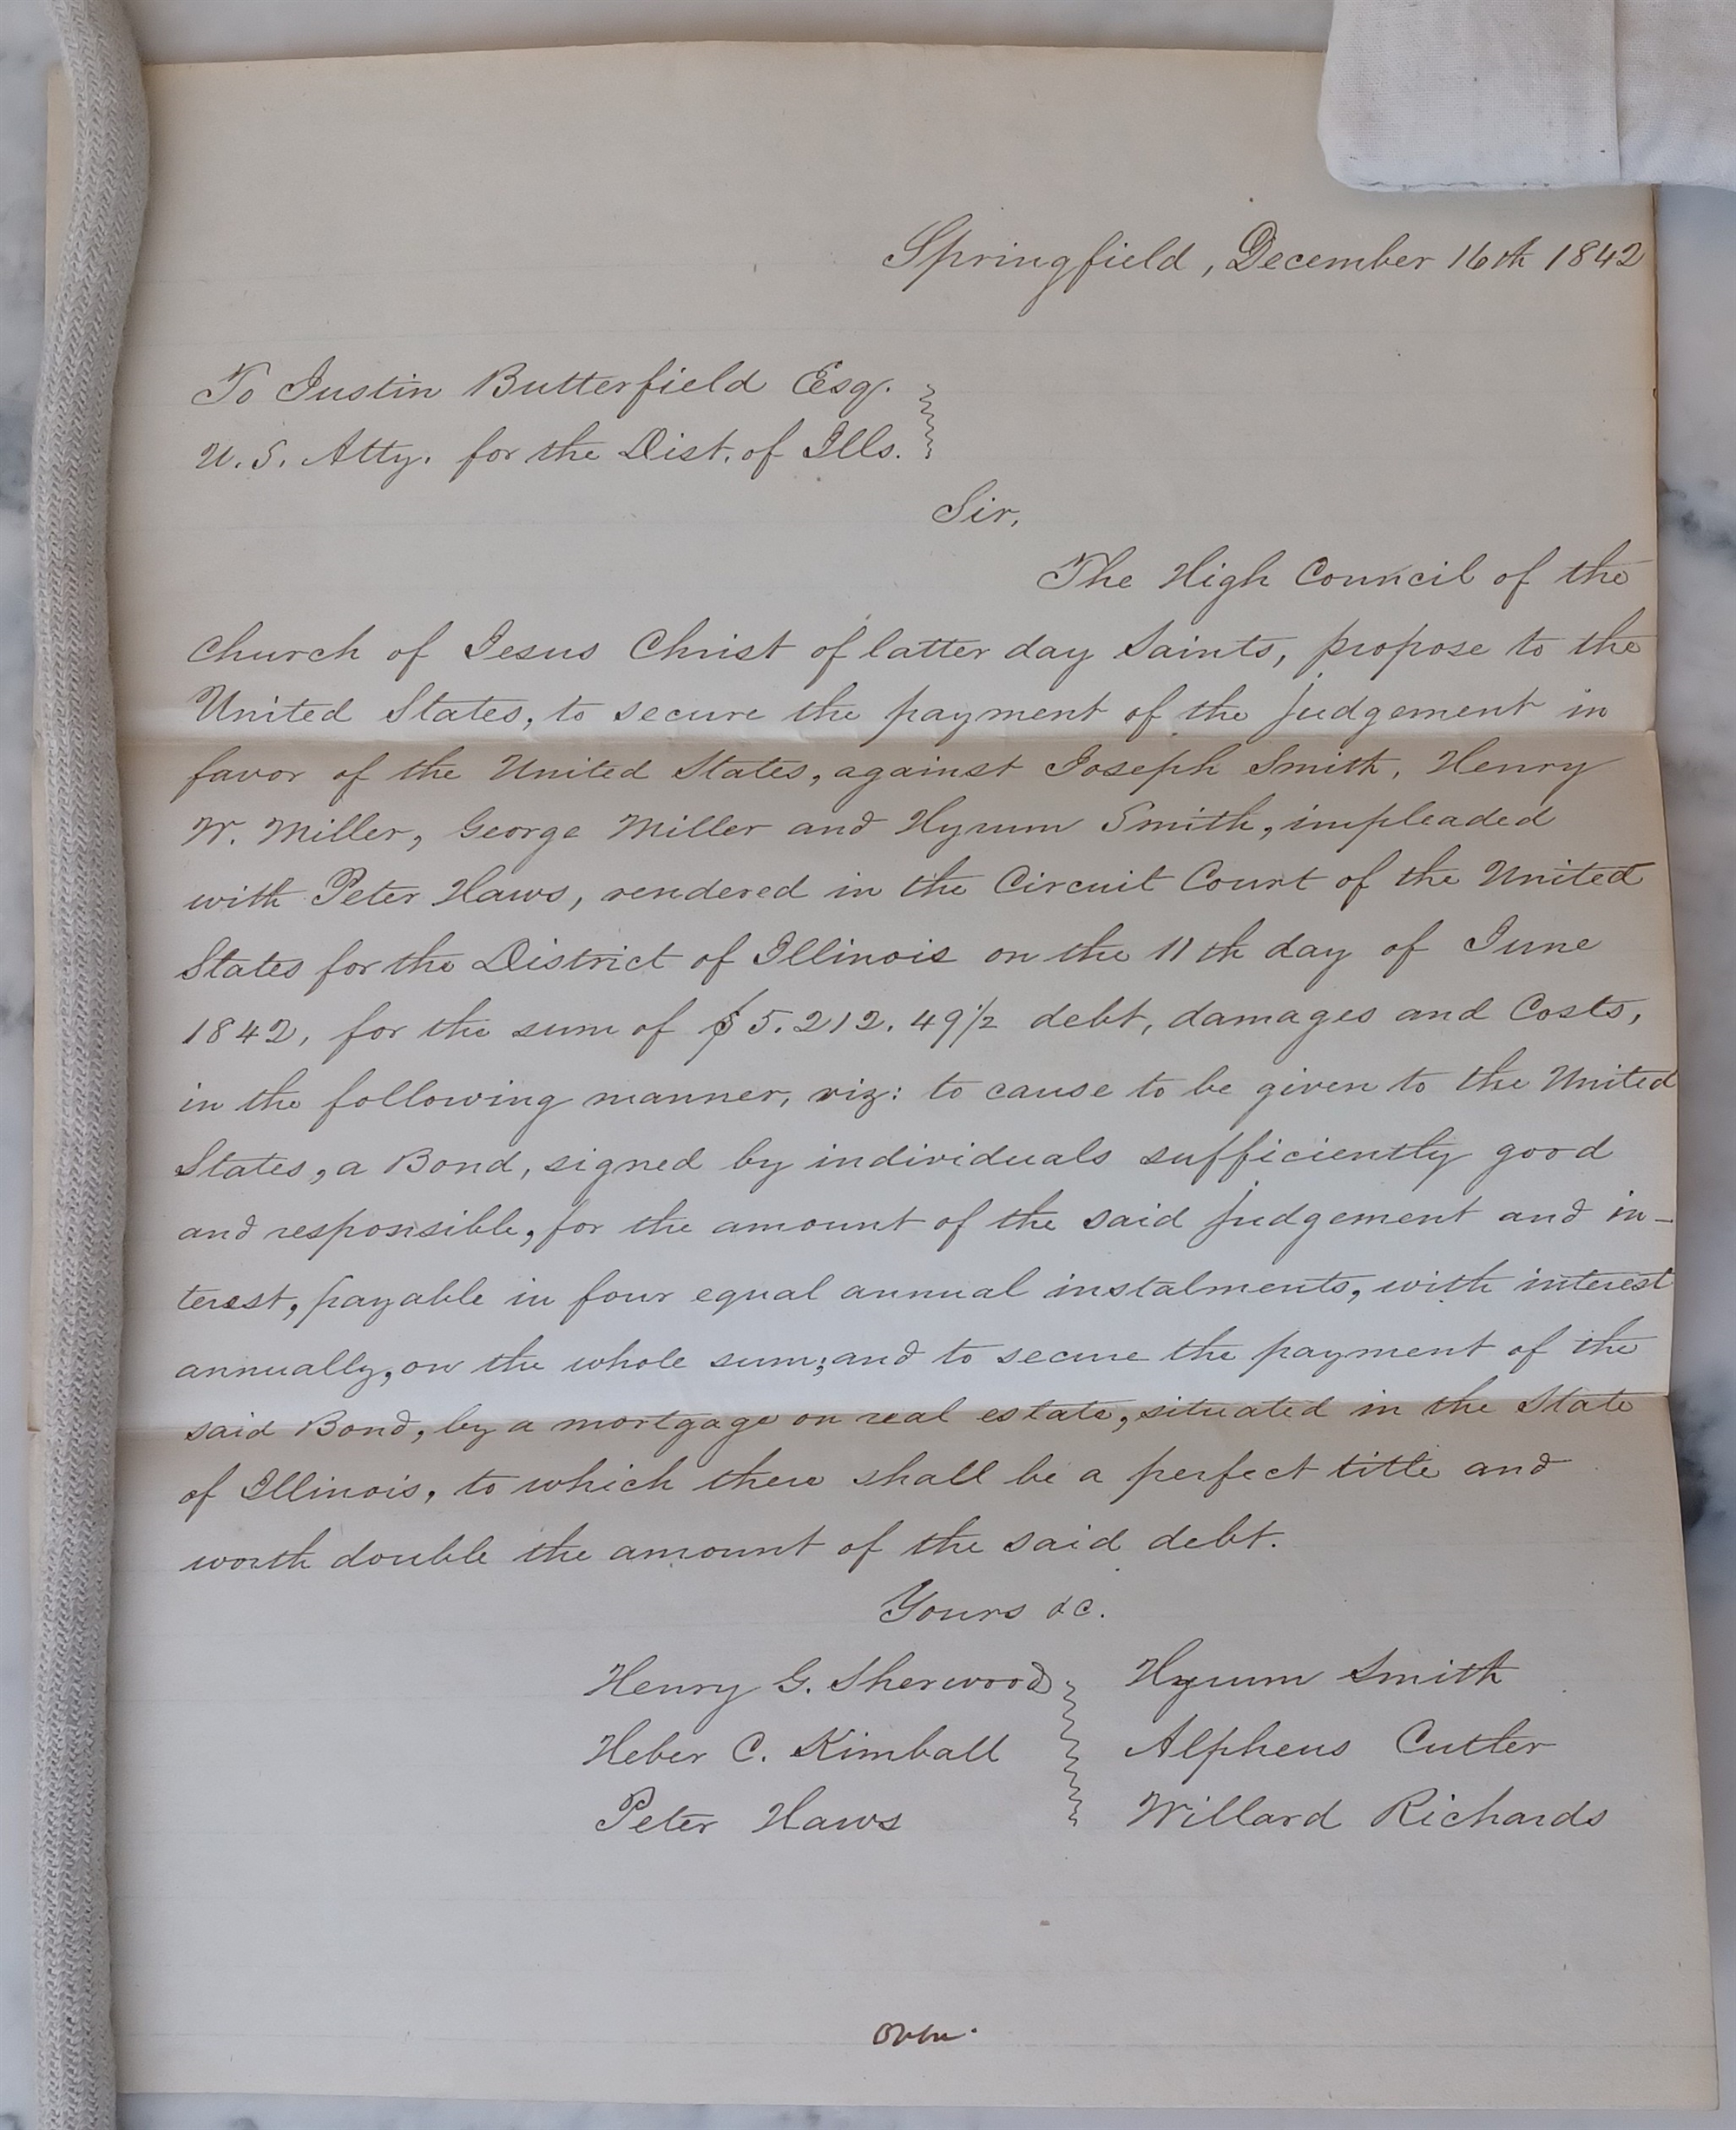 Springfield, December 16th 1842
To Justin Butterfield Esq.
U. S. Atty. for the Dist. of Ills.
Sir,
The High Council of the
church of Jesus Christ of latter day Saints, propose to the
United States, to secure the payment of the judgement in
favor of the United States, against Joseph Smith, Henry
W. Miller, George Miller and Hyrum Smith, impleaded
with Peter Haws, rendered in the Circuit Court of the United
States for the District of Illinois on the 11th day of June
1842, for the sum of $5.212.49½ debt, damages and Costs,
in the following manner, viz: to cause to be given to the United
States, a Bond, signed by individuals sufficiently good
and responsible, for the amount of the said judgement and in-
terest, payable in four equal annual instalments, with interest
annually, on the whole sum; and to secure the payment of the
said Bond, by a mortgage on real estate, situated in the State
of Illinois, to which there shall be a perfect title and
worth double the amount of the said debt.
Yours &c.
Henry G. Sherwood Hyrum Smith
Heber C. Kimball Alpheus Cutler
Peter Haws Willard Richards
Over.